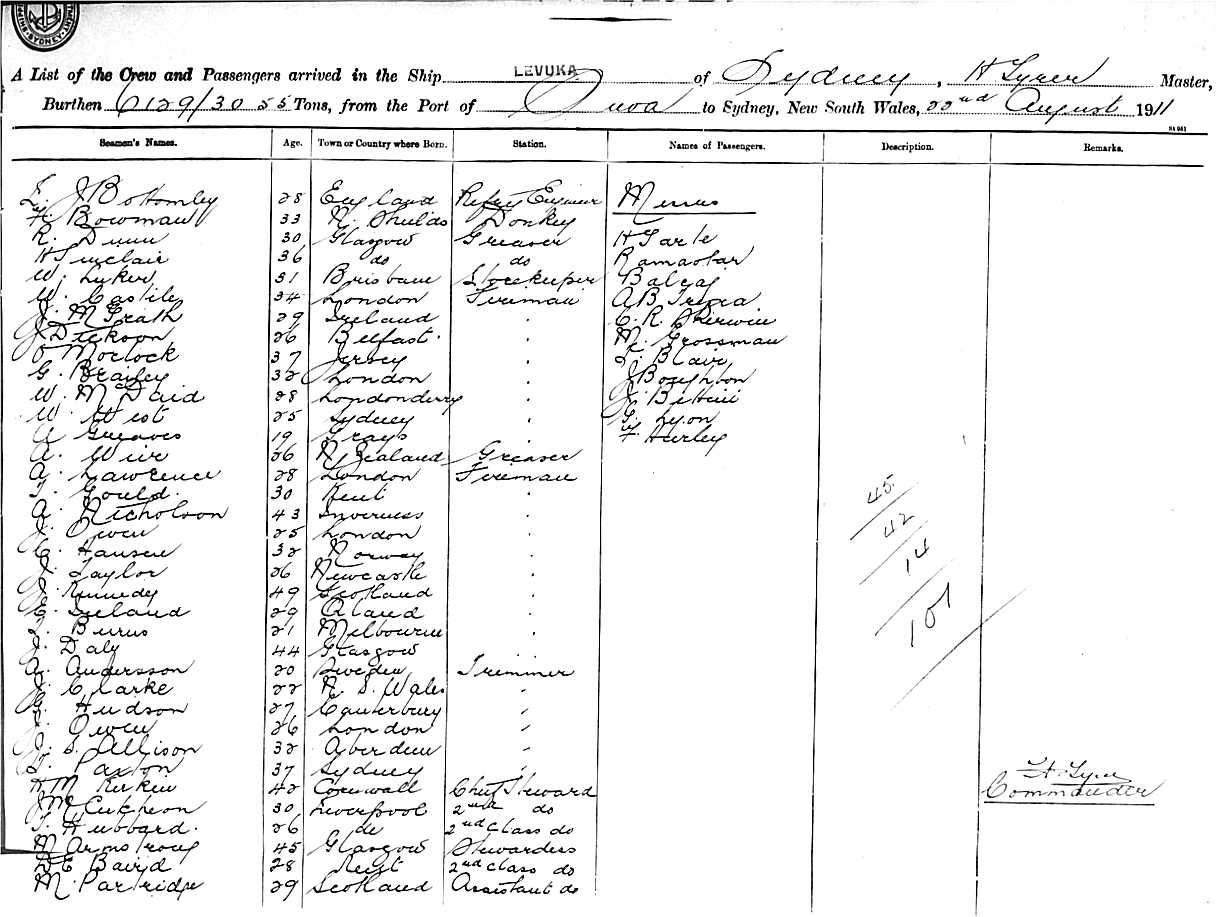 SHIPPING SYDNEY
A List of the Crew and Passengers arrived in the Ship LEVUKA of Sydney, H Tyrer Master,
Burthen 6129/3055 Tons, from the Port of Suva to Sydney, New South Wales, 22nd August 1911
Seamen's Names. Age. Town or Country where Born. Station. Names of Passengers. Description. Remarks.
J Bottomley 28 England Refrg Engineer Messrs
Bowman 33 N. Shields Donkey
R. Dunn 30 Glasgow Greaser H Tarte
H Sinclair 36 do do Ramaotar
W. Luker 31 Brisbane Storekeeper
W. Castile 34 London Fireman A B
J. McGrath 29 Ireland " C. R. Sherwin
J Dickson 26 Belfast " M. Grossman
Morlock 37 Jersey "
G. Brailey 32 London " J Boughton
W. McDaid 28 Londonderry "
W. West 25 Sydney " G. Lyon
A Greaves 19 Grays " F. Hurley
A. Weir 26 N Zealand Greaser
A. Lawrence 28 London Fireman
T. Gould. 30 Kent " 45
A. Nicholson 43 Inverness "
J. Owen 25 London " 42
C. Hansen 32 Norway "
J. Taylor 26 Newcastle " 14
J. Kennedy 49 Scotland "
C. Ireland 29 Aland "
Burns 21 Melbourne " 101
J. Daly 44 Glasgow "
A. Andersson 20 Sweden Trimmer
J. Clarke 22 N. S. Wales "
G. Hudson 27 Canterbury "
J. Owen 26 London "
J. S. Allison 32 Aberdeen "
T. Paxton 37 Sydney " H. Tyrer
H M Kirkin 42 Cornwall Chief Steward Commander
J McCutcheon 30 Liverpool 2nd do
T. Hubbard. 26 do 2nd Class do
M Armstrong 45 Glasgow Stewardess
D E Baird 28 2nd class do
M. Partridge 29 Scotland Assistant do